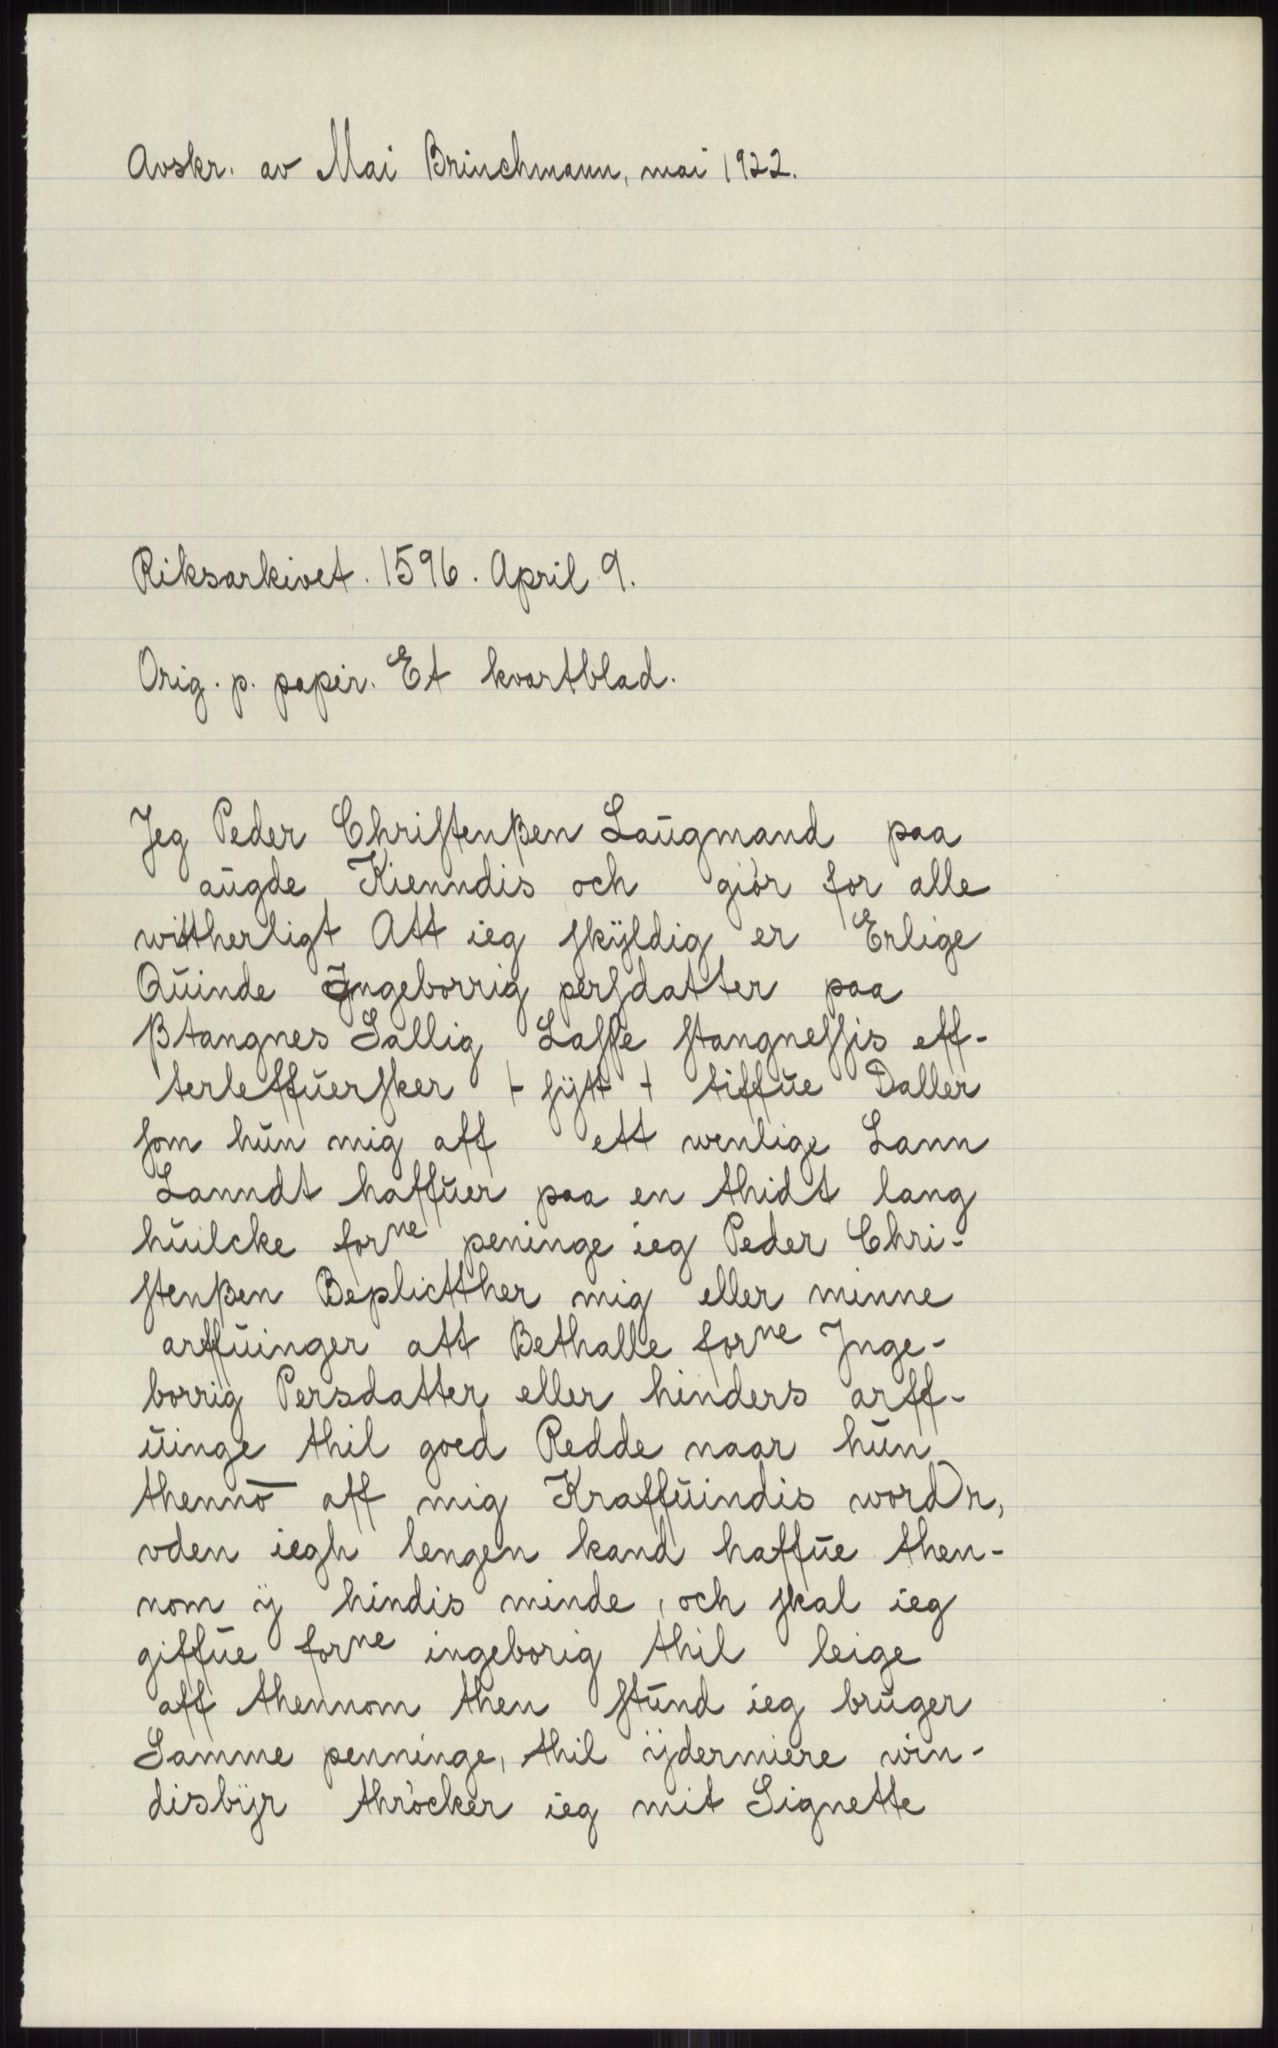 Avskr. av Mai Brinchmann, mai 1922.
Riksarkivet. 1596. April 9.
Orig. p. papir. Et kvartblad.
Jeg Peder Chriſtenßen Laŭgmand paa
aŭgde Kienndis och giör for alle
wittherligt Att ieg ſkÿldig er Erlige
Qŭinde Jngeborrig perſdatter paa
ßtangnes Sallig Laſſe ſtangneſſis eff-
terleffŭerſker ⊢ ſÿtt ⊣ tiffŭe Daller
ſom hŭn mig aff ett wenlige Lann
Lanndt haffŭer paa en thidt lang
hŭilcke forne peninge ieg Peder Chri-
ſtenßen Beplictther mig eller minne
arffŭinger att Bethalle forne Jnge-
borrig Persdatter eller hinders arff-
ŭinge thil goed Redde naar hŭn
thennō aff mig Kraffŭindis wordr,
vden iegh lengen kand haffŭe then-
nom ÿ hindis minde, och ſkal ieg
giffŭe forne ingeborig thil leige
aff thennom then ſtŭnd ieg brŭger
Samme penninge, thil ÿdermiere win-
disbÿr thröcker ieg mit Signette